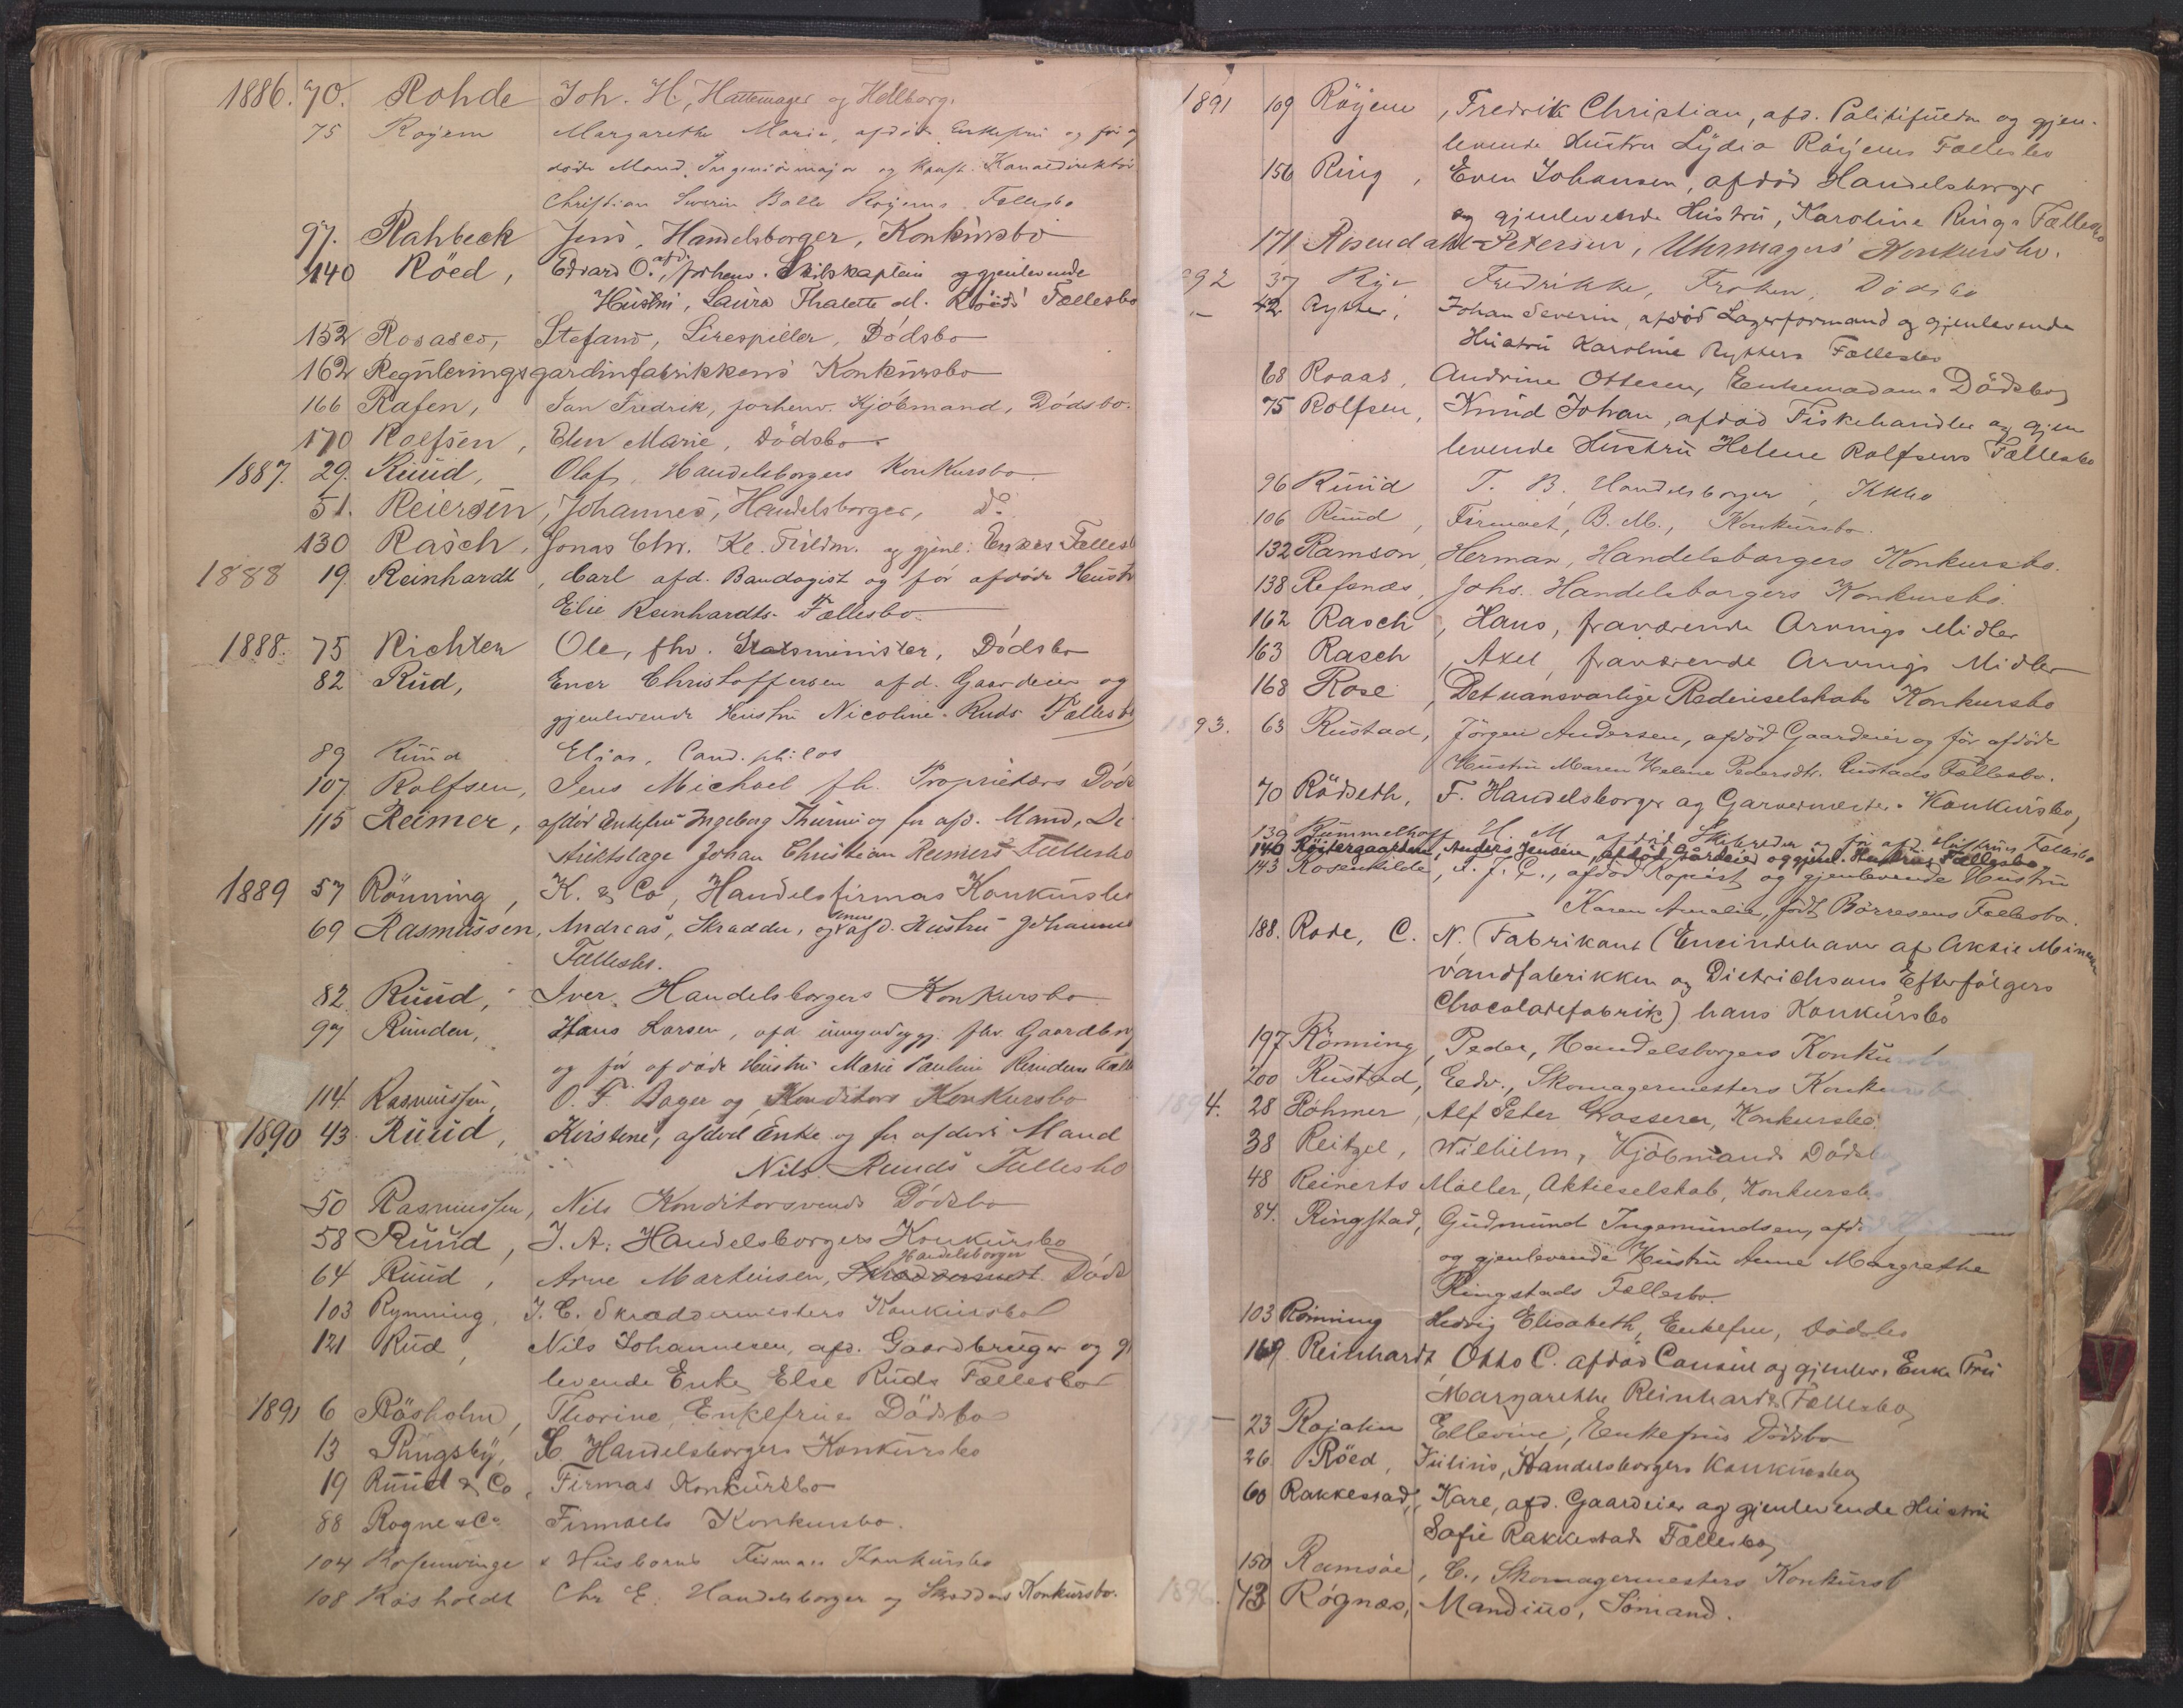 1886. 70. Rohde Joh. H., Hattemager og Hellborg.
75 Röyem Margarethe Marie, afdöde Enkefru og för af
döde Mand, Ingeniörmajor og Kanaldirektör
Christian Severin Balle Röyems Fællesbo
97. Rahbeck Jens, Handelsborger, Konkursbo
140 Röed, Edvard O. afd. forhenv. Skibskaptein og gjenlevende
Hustru, Laura Thalette Röeds Fællesbo
152 Rosasco, Stefano, Lirespiller, Dödsbo
162 Reguleringsgardinfabrikkens Konkursbo
166 Rafen, Jan Fredrik, forhenv. Kjöbmand, Dödsbo.
170 Rolfsen, Elen Marie, Dödsbo
1887. 29. Ruud, Olaf, Handelsborgers Konkursbo
51. Reiersen, Johannes, Handelsborger, Do
130 Rasch, Jonas Chr. Kl. Fuldm. og gjenl. Enkes Fællesb
1888 19. Reinhardt, Carl afd. Bandagist og för afdöde Hustr
Elie Reinhardts Fællesbo
1888. 75 Richter Ole, fhv. Statsminister, Dödsbo
82 Rud, Ener Christoffersen afd. Gaardeier og
gjenlevende Hustru Nicoline Ruds Fællesbo
89 Ruud Elias, Cand. philos
107 Rolfsen, Jens Michael fh. Proprietærs Döds
115 Reimer, afdöd Enkefru Ingeborg Thurine og för afd. Mand, Di
striktslæge Johan Christian Reimers Fællesbo
1889 57 Rönning, K. & Co, Handelsfirmas Konkursbo
69 Rasmussen, Andreas, Skrædder, og afd. Hustru Johanne
Fællesbo.
82 Ruud, Iver, Handelsborgers Konkursbo
97 Runden, Hans Larsen, afd. fhv. Gaardbr
og för afdöde Hustru Marie Pauline Rundens Fælle
114. Rasmussen, O. F. Bager og Konditors Konkursbo
1890 43. Ruud, Kirstene, afdöd Enke og för afdöde Mand
Nils Ruuds Fællesbo
50 Rasmussen, Nils Konditorsvends Dödsbo
58 Ruud, J. A. Handelsborgers Konkursbo
Handelsborger
64 Ruud, Arne Martinsen, Döds
103 Rynning, J. C. Skræddermesters Konkursbo
121 Rud, Nils Johannesen, afd. Gaardbruger og gj
levende Enke Else Ruds Fællesbo
1891 6 Rösholm, Thorine, Enkefrues Dödsbo
13 Ringsby, Handelsborgers Konkursbo
19 Ruud & Co, Firmas Konkursbo
88 Rogne & Co Firmaets Konkursbo.
104 Rosenvinge & Husborns Firmas Konkursbo
108 Rösholdt Chr E. Handelsborger og Skrædders Konkursbo.
1891 109 Röyem, Fredrik Christian, afd. Politifuldm og gjen-
levende Hustru Lydia Röyems Fællesbo
156 Ring, Even Johansen, afdöd Handelsborger
og gjenlevende Hustru, Karoline Rings Fællesbo
171 Rosendahl-Petersen, Uhrmagers Konkursbo.
892 37 Rye Fredrikke, Fröken, Dödsbo
42 Rytter, Johan Severin, afdöd Lagerformand og gjenlevende
Hustru Karoline Rytters Fællesbo
68 Roaas, Andrine Ottesen, Enkemadams Dödsbo
75 Rolfsen, Knud Johan, afdöd Fiskehandler og gjen
levende Hustru Helene Rolfsens Fællesbo
96 Ruud T. B. Handelsborger, Kkbo
106 Ruud, Firmaet, B. M., Konkursbo.
132 Ramson, Herman, Handelsborgers Konkursbo.
138 Refsnæs, Johs. Handelsborgers Konkursbo.
162 Rasch, Hans, fraværende Arvings Midler
163 Rasch, Axel, fraværende Arvings Midler
168 Rose, Det uansvarlige Rederiselskabs Konkursbo
1893. 63 Rustad, Jörgen Andersen, afdöd Gaardeier og för afdöde
Hustru Maren Helene Pedersdtr. Rustads Fællesbo.
70 Rödseth, F. Handelsborger og Garvermesters Konkursbo
139 Rummelhoff, H. M. afdöd Skibsreder og för afd. Hustrus Fællesbo
140 Röitergaarden, Anders Jensen, afdöd Gårdeier og gjenl. Hustrus Fællesbo
143 Rosenkilde, F. J. C., afdöd Kopist og gjenlevende Hustru
Karen Amalie, födt Börresens Fællesbo.
188. Rode, C. N. Fabrikant (Eneindehaver af Aktie Mineral
vandfabrikken og Dietrichsons Efterfölgers
Chocoladefabrik) hans Konkursbo
197 Rönning, Peder, Handelsborgers Konkursbo
200 Rustad, Edv., Skomagermesters Konkursbo
1894. 28 Röhmer, Alf Peter Grosserer, Konkursbo
38 Reitzel, Wilhelm, Kjöbmands Dödsbo
48 Reinerts Möller, Aktieselskab, Konkursbo
84. Ringstad, Gudmund Ingemundsen, afd.
og gjenlevende Hustru Anne Margrethe
Ringstads Fællesbo.
103 Rönning Hedvig Elisabeth, Enkefru, Dödsbo
169 Reinhardt, Otto C. afdöd Consul og gjenlev. Enke Fru
Margarethe Reinhardts Fællesbo
1895 23 Rojahn Ellevine, Enkefrus Dödsbo
26 Röed, Julius, Handelsborgers Konkursbo
60 Rakkestad, Kare, afd. Gaardeier og gjenlevende Hustru
Sofie Rakkestads Fællesbo
150 Ramsöe, C., Skomagermesters Konkursb
1896. 43 Rögnæs, Mandius, Sömand.